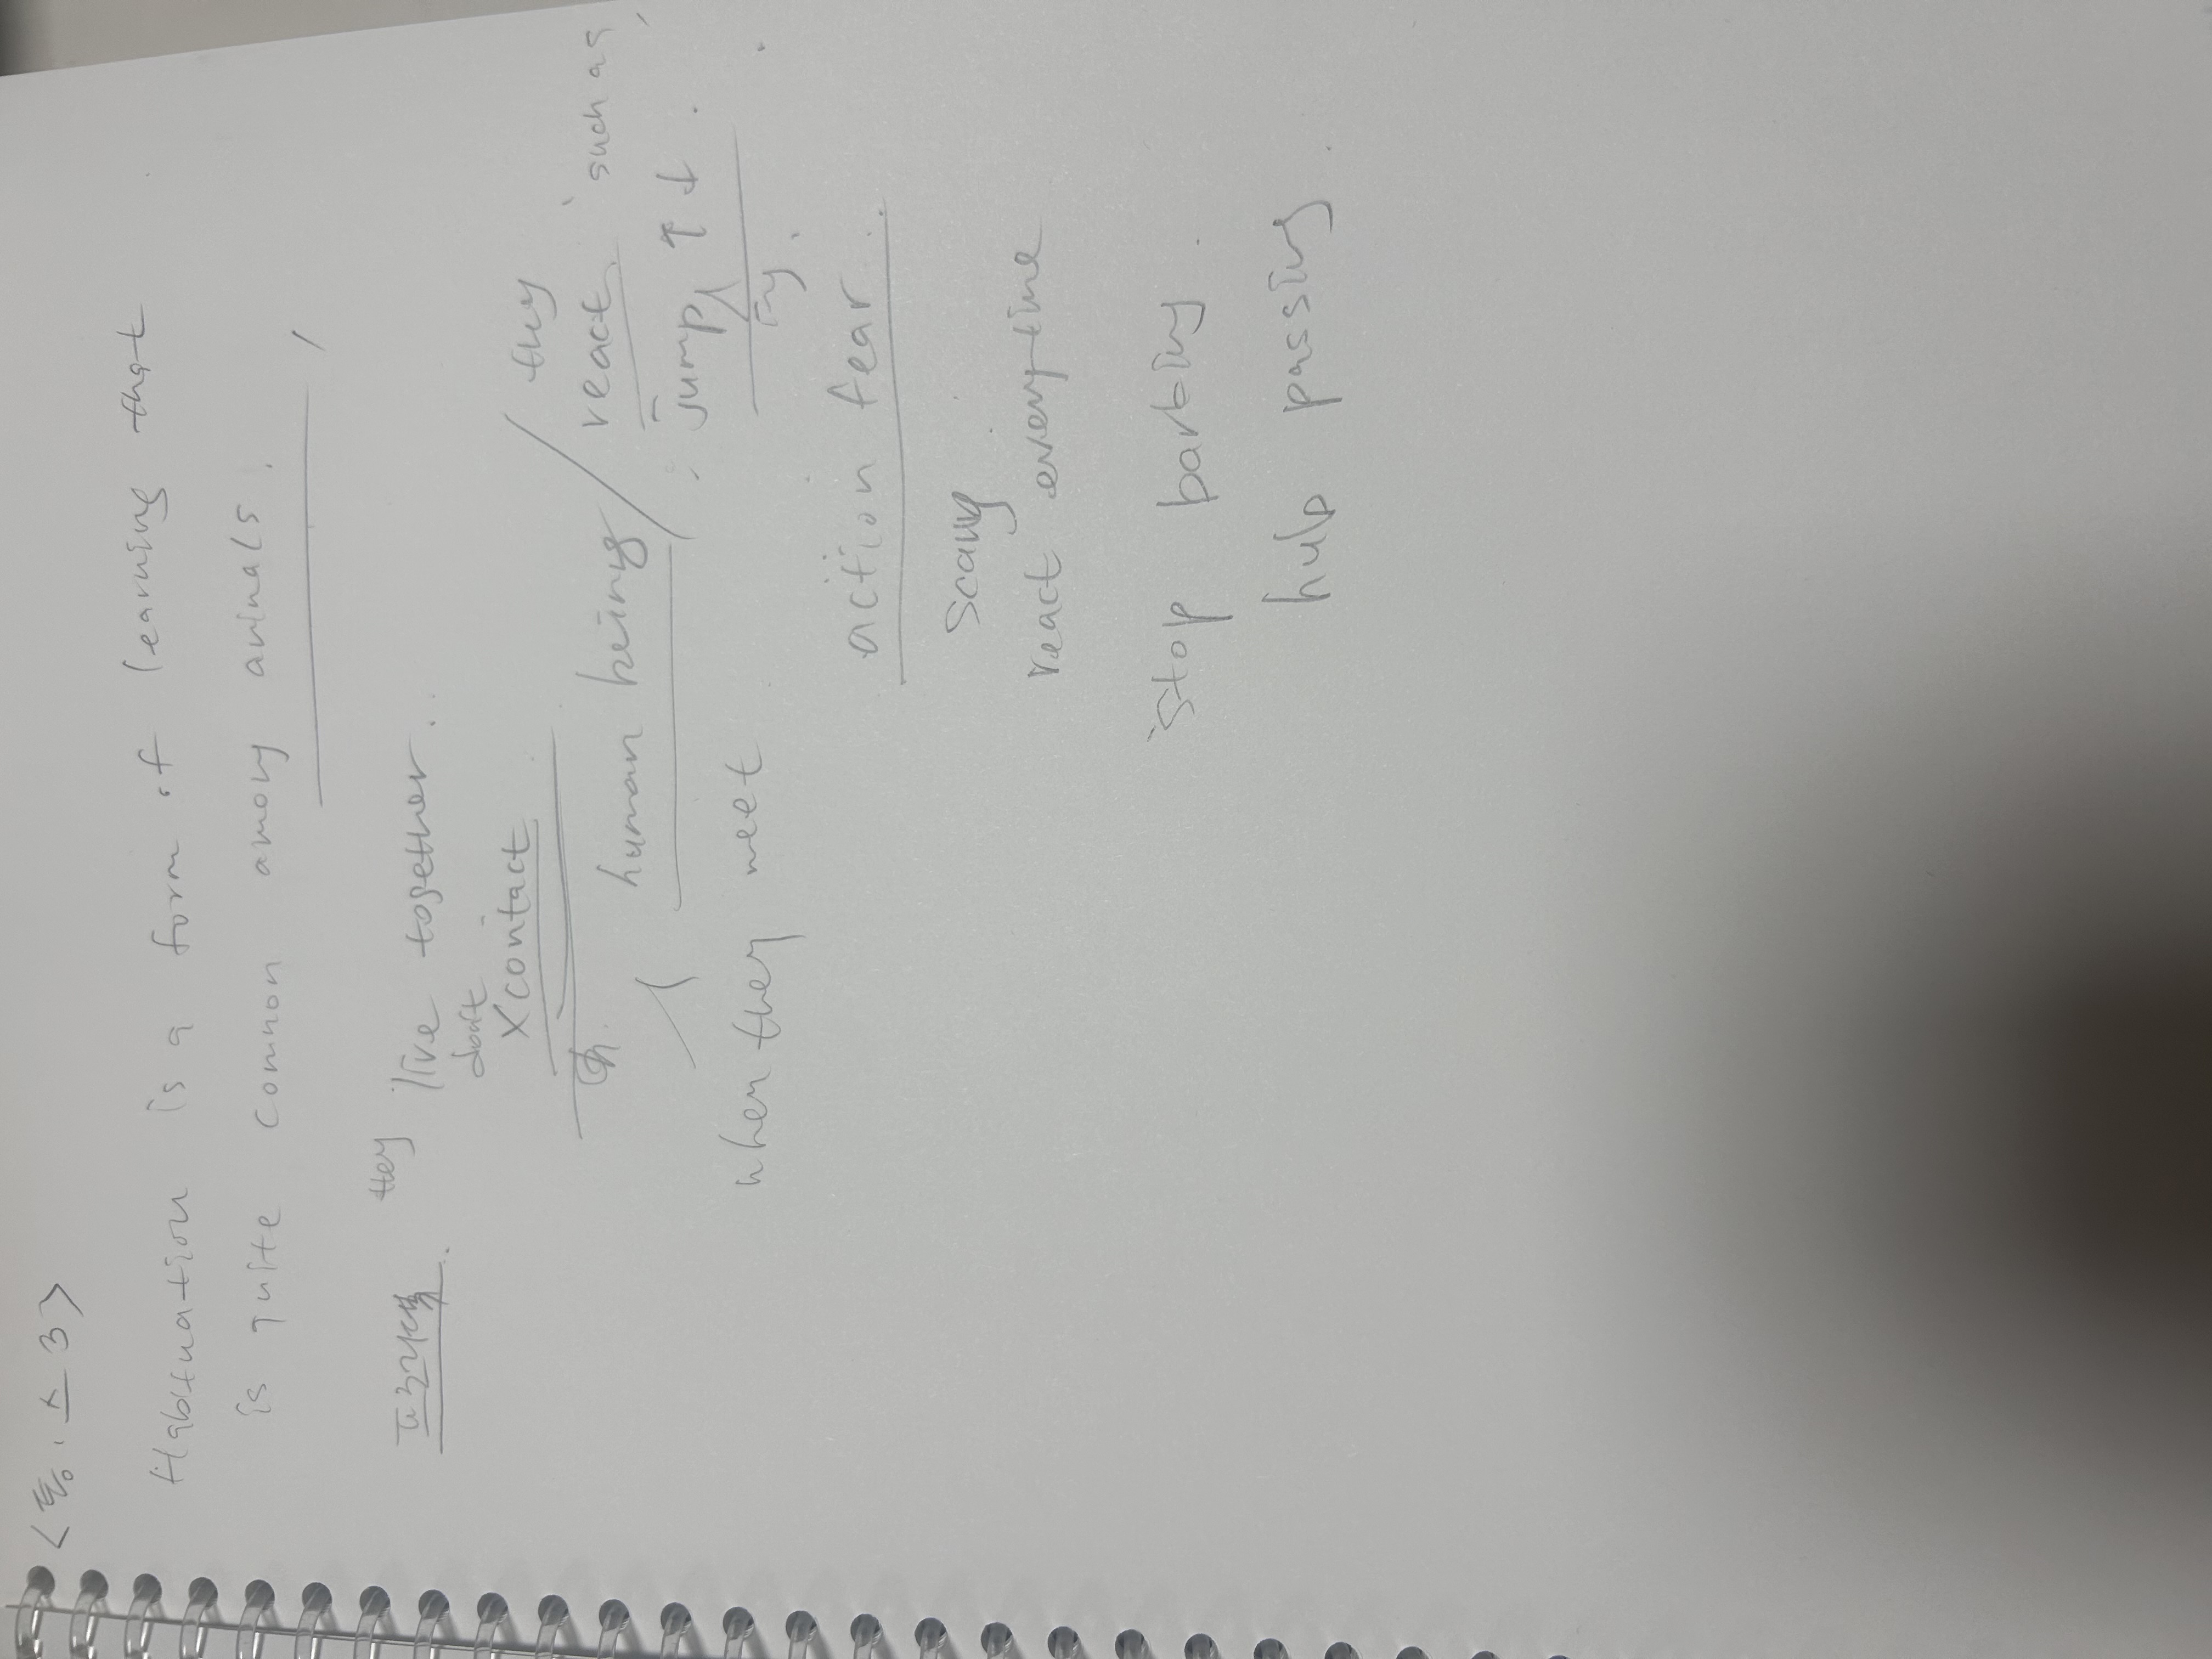 Habituation is a form of learning that
is quite common among animals.
they live together..
don't
X contact
they
human being / react. such as,
: jump ↑ ↓ .
fly.
when they meet
action fear..
scary
react everytime
stop barking.
help passing.